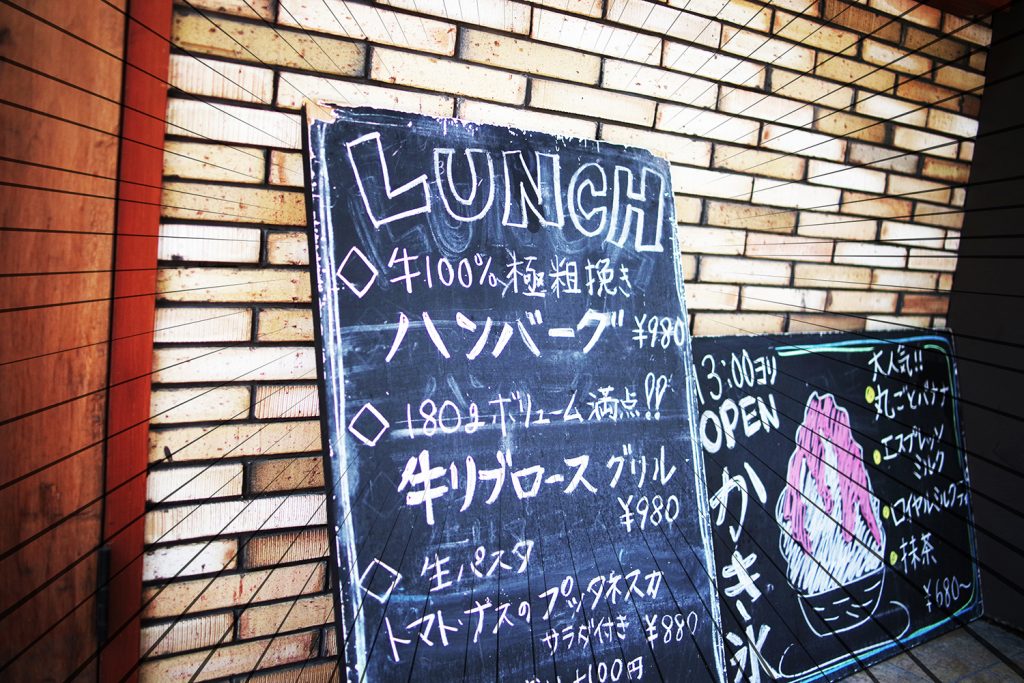 LUNCH
◇牛100%極粗挽き
ハンバーグ ¥980
◇180gボリューム満点!!
牛リブロースグリル
¥980
◇生パスタ
トマト・ナスのプッタネスカ
サラダ付き ¥880
+100円
3:00ヨリ
OPEN
かキ氷
大人気!!
丸ごとバナナ
エスプレッソ
ミルク
ロイヤルミルクティ
抹茶
¥680~